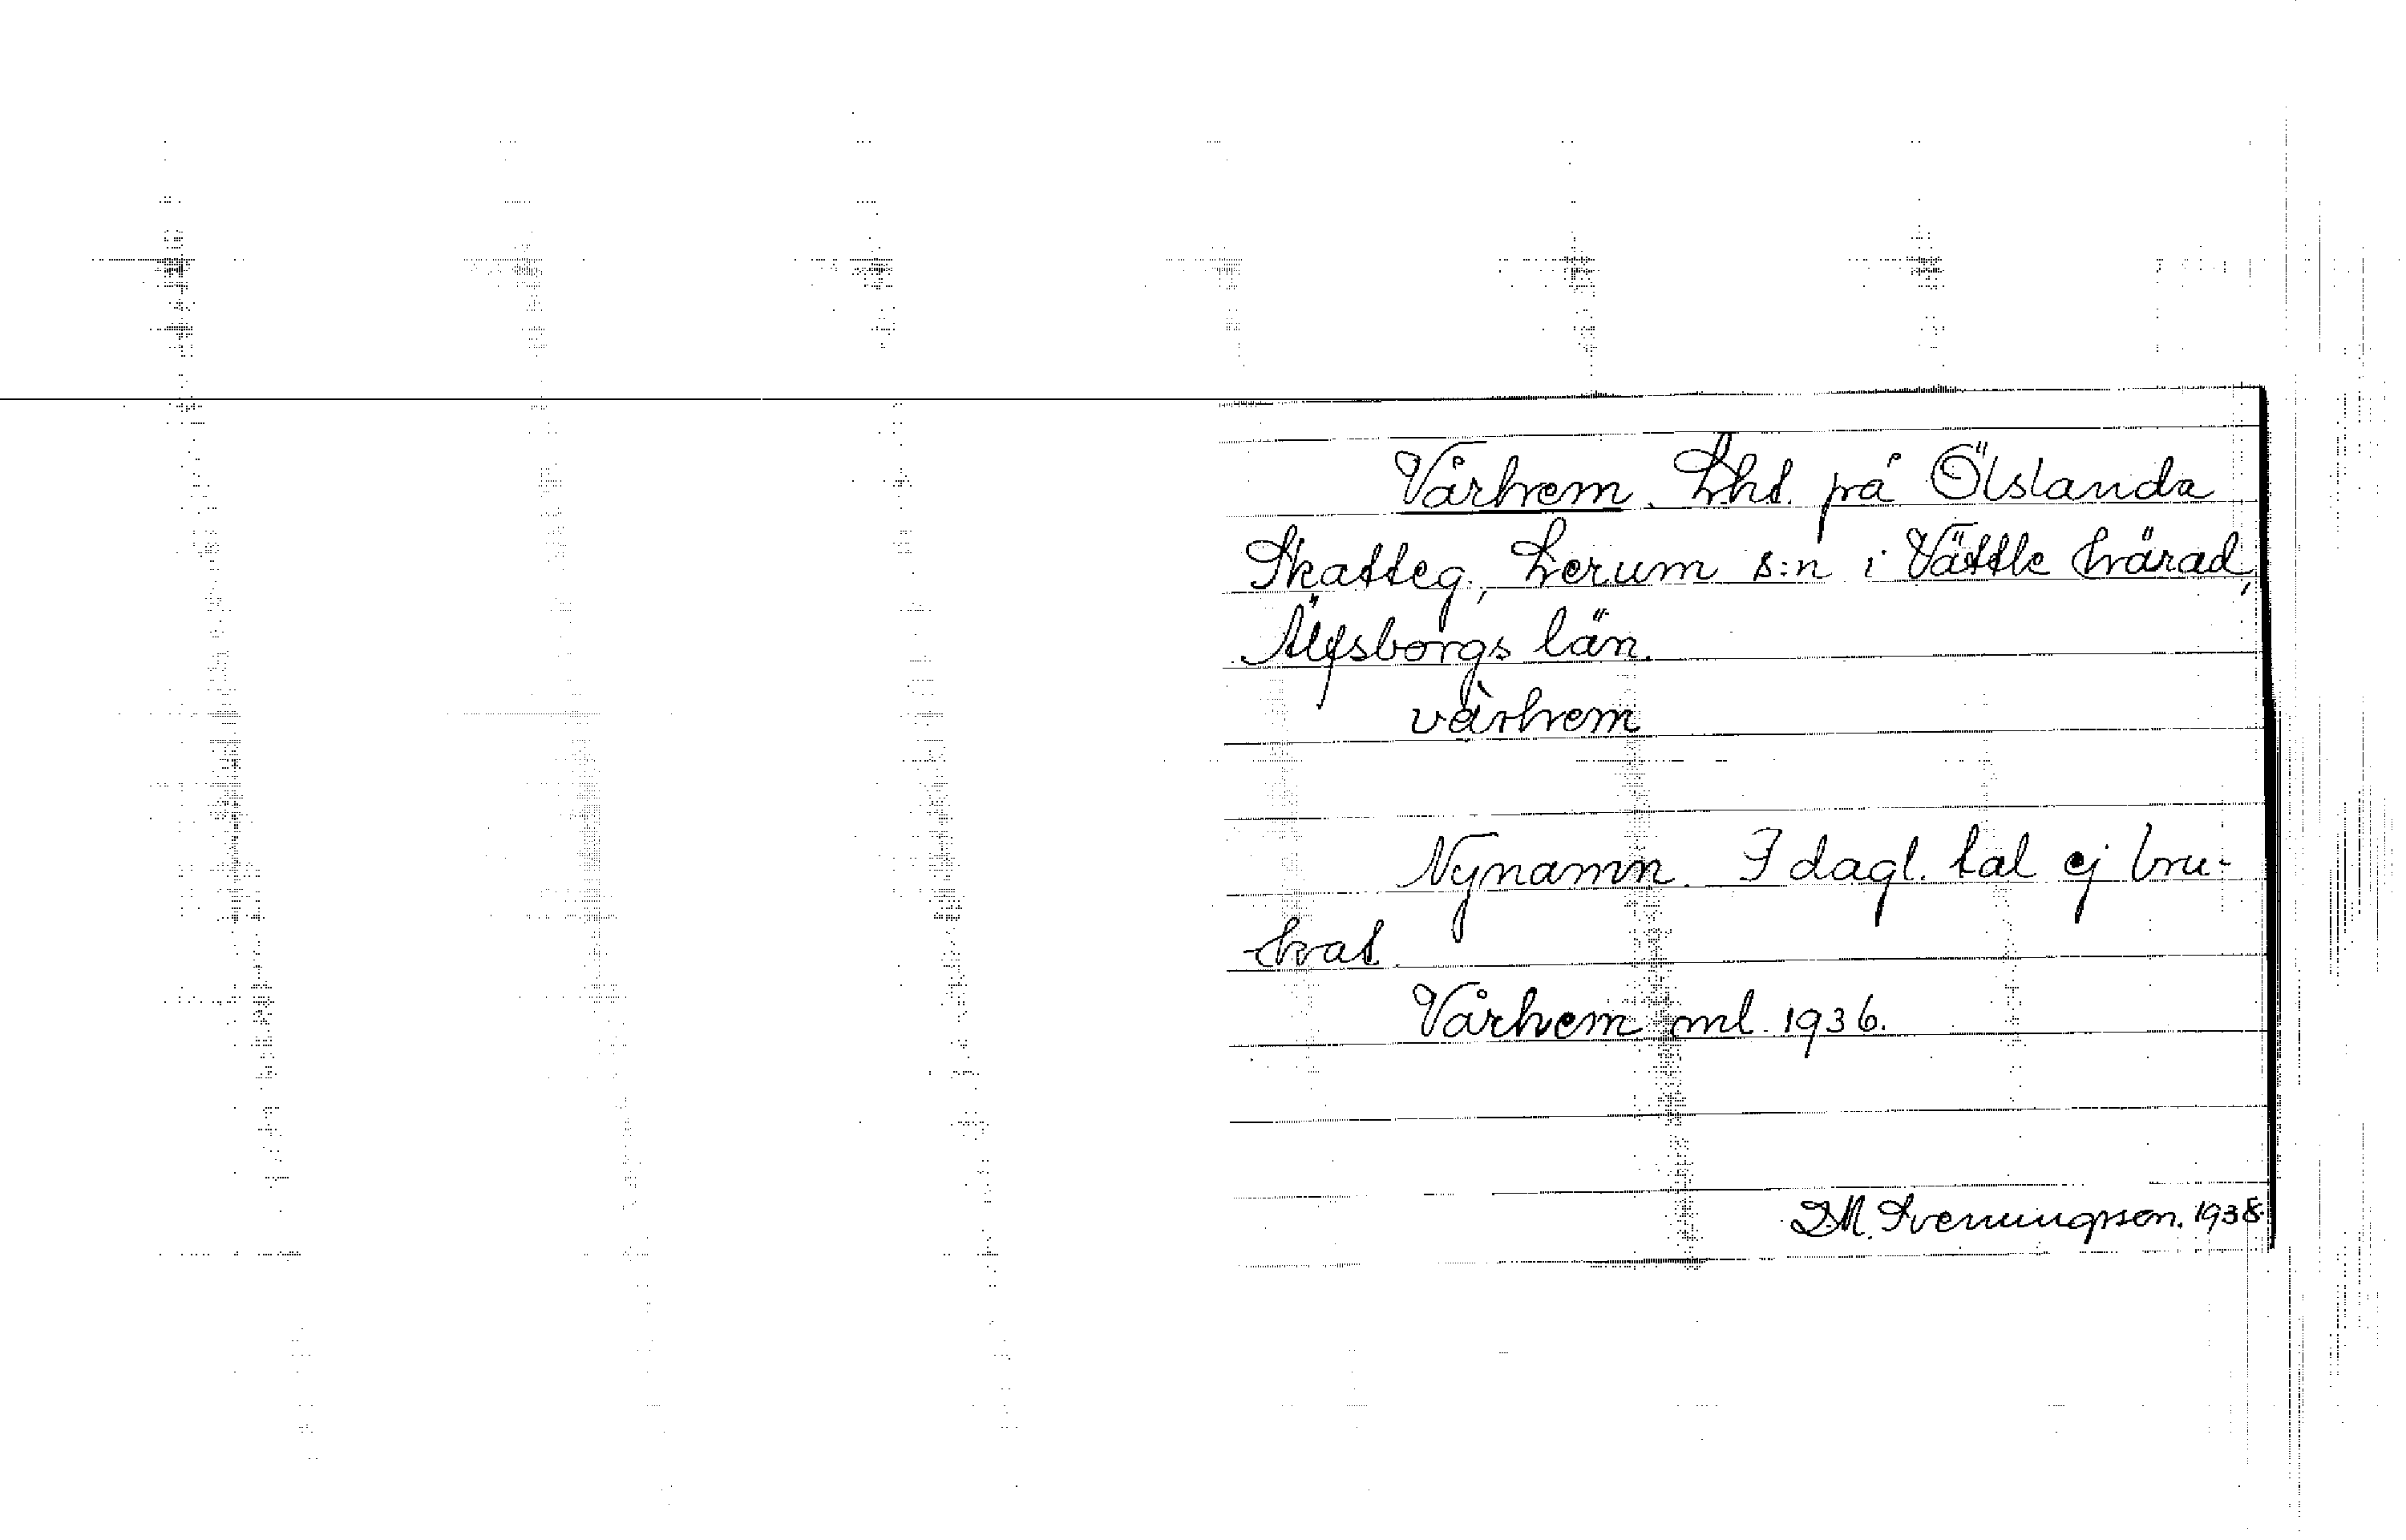 Vårhem. Lht. på Ölslanda
Skatteg., Lerum s:n i Vättle härad,
Älfsborgs län.
vàrhem
Nynamn. I dagl. tal ej bru-
kat.
Vårhem ml. 1936.
D.M. Svenungsson. 1938.